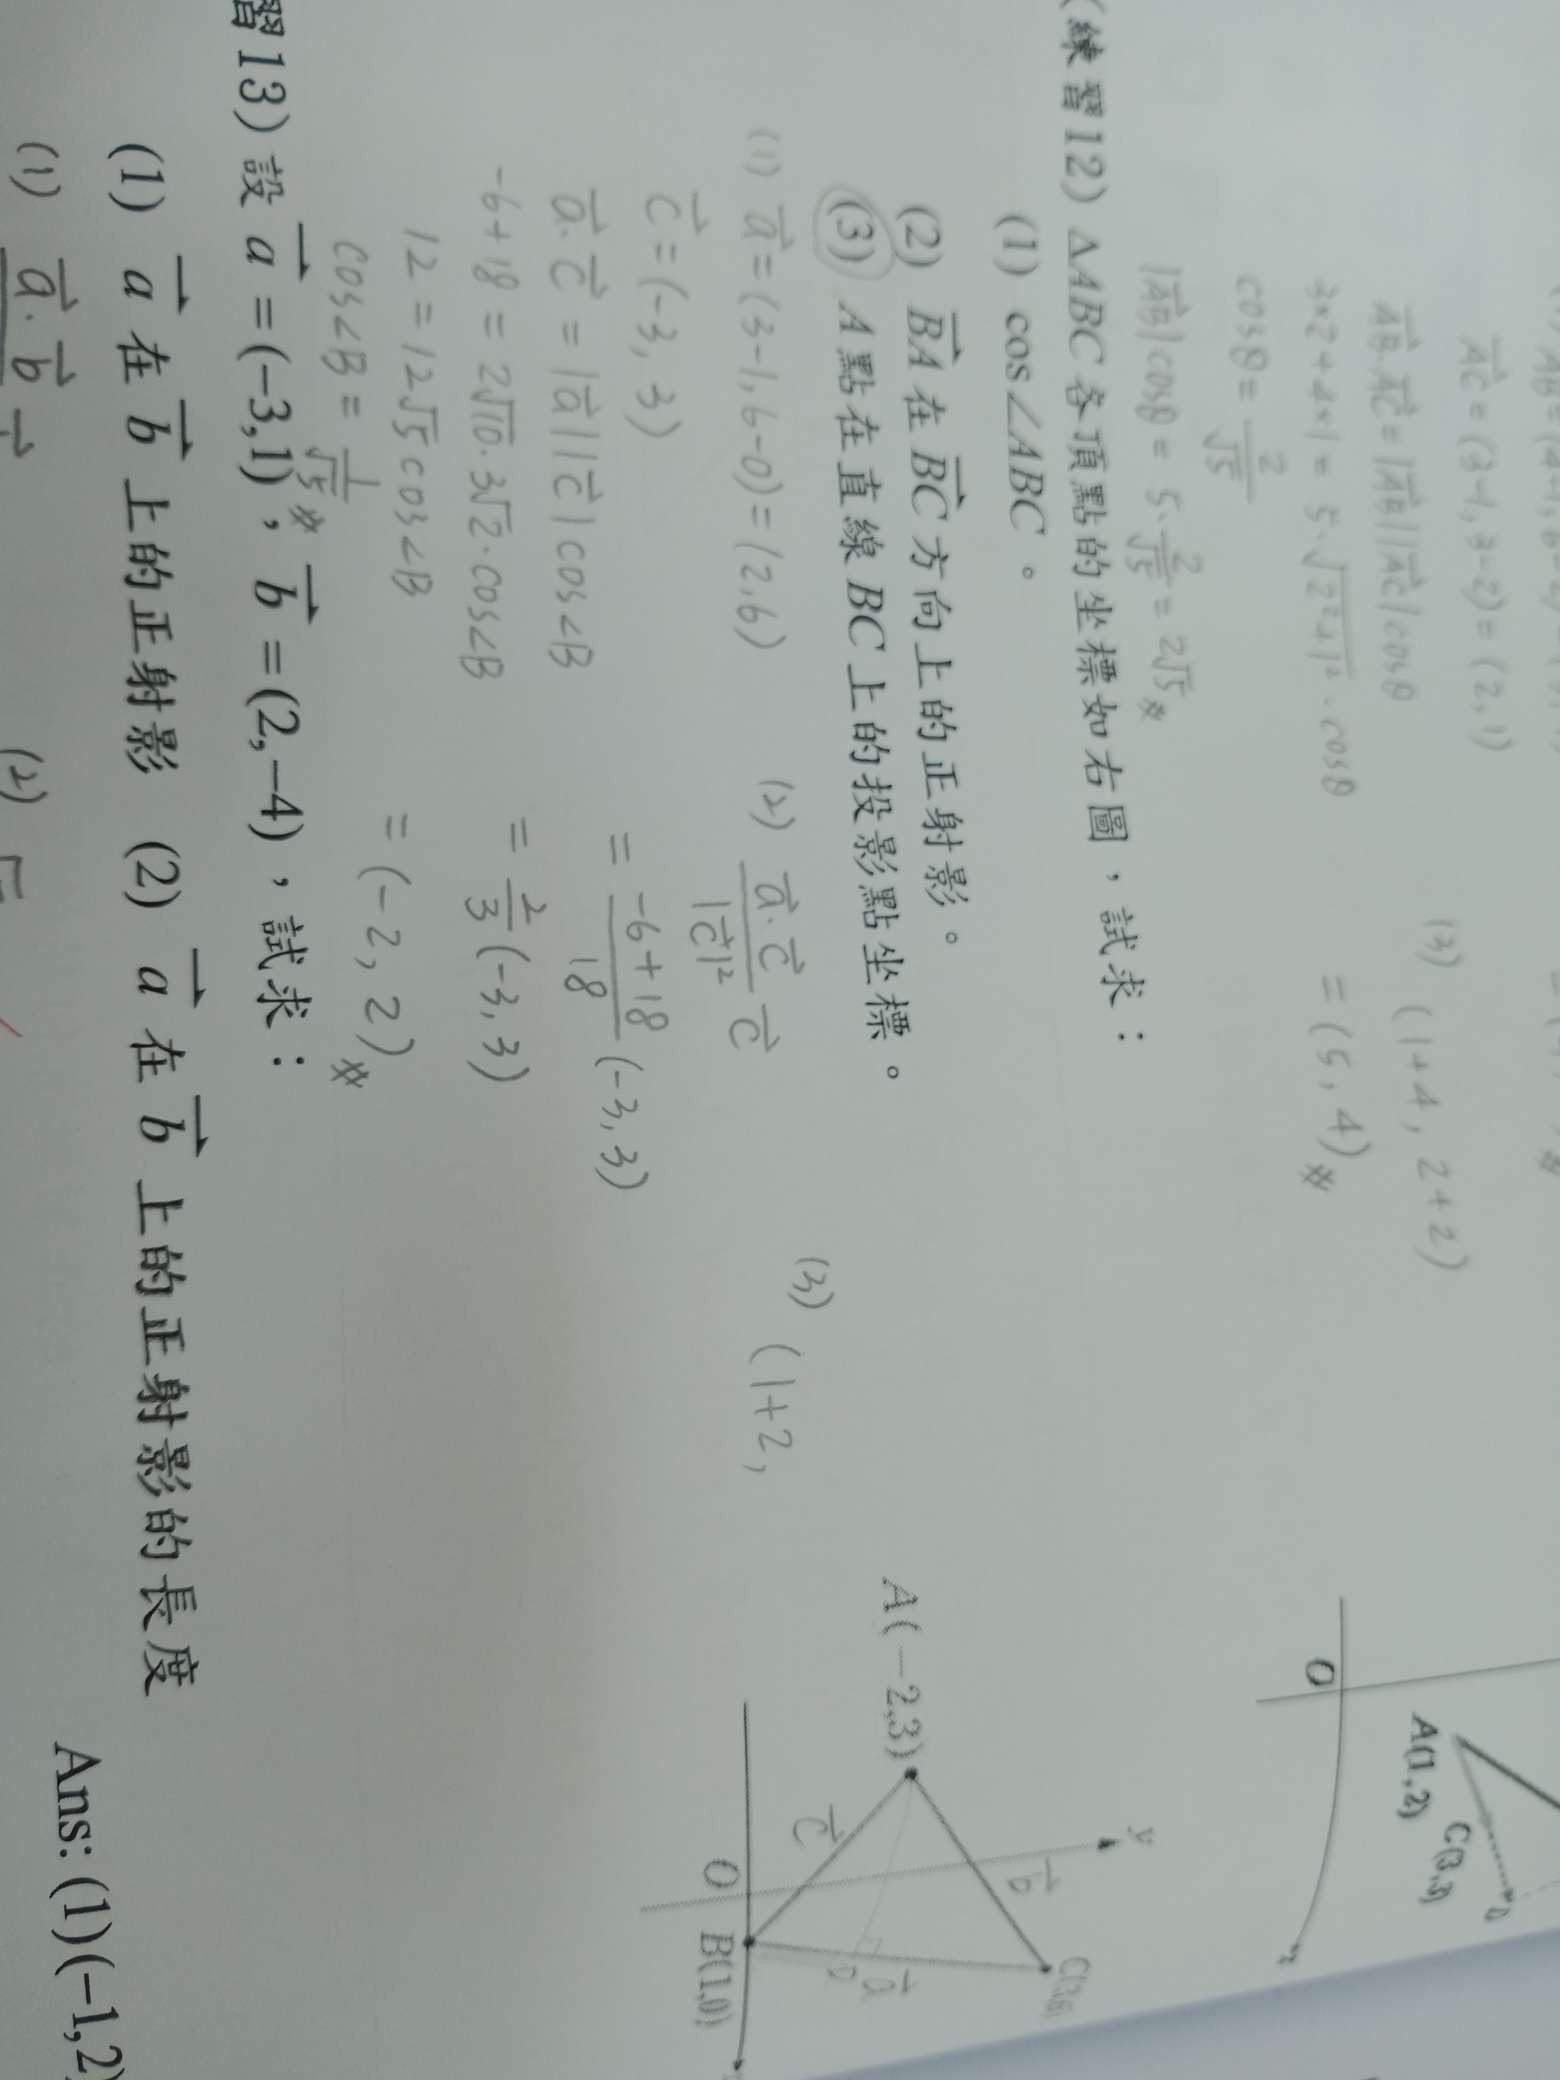 AC = (3-1, 3-2) = (2, 1)
AB·AC = |AB||AC|cosθ
3×2+4×1 = 5·√2²+1²·cosθ
cosθ = 2/√5
|AB|cosθ = 5·2/√5 = 2√5 #
(3) (1+4, 2+2)
= (5, 4) #
O
A(1,2)
C(3,3)
D
x
(練習12) △ABC各頂點的坐標如右圖，試求：
(1) cos∠ABC。
(2) BA在BC方向上的正射影。
(3) A點在直線BC上的投影點坐標。
(1) a = (3-1, 6-0) = (2, 6)
c = (-3, 3)
a·c = |a||c|cos∠B
-6+18 = 2√10·3√2·cos∠B
12 = 12√5cos∠B
cos∠B = 1/√5 #
(2) a·c/|c|² c
= -6+18/18 (-3, 3)
= 2/3 (-3, 3)
= (-2, 2) #
(3) (1+2,
A(-2,3)
y
b
C(3,6)
c
a
D
O
B(1,0)
習13) 設 a = (-3,1)，b = (2,-4)，試求：
(1) a 在 b 上的正射影 (2) a 在 b 上的正射影的長度
Ans: (1)(-1,2)
(1) a·b
(2)